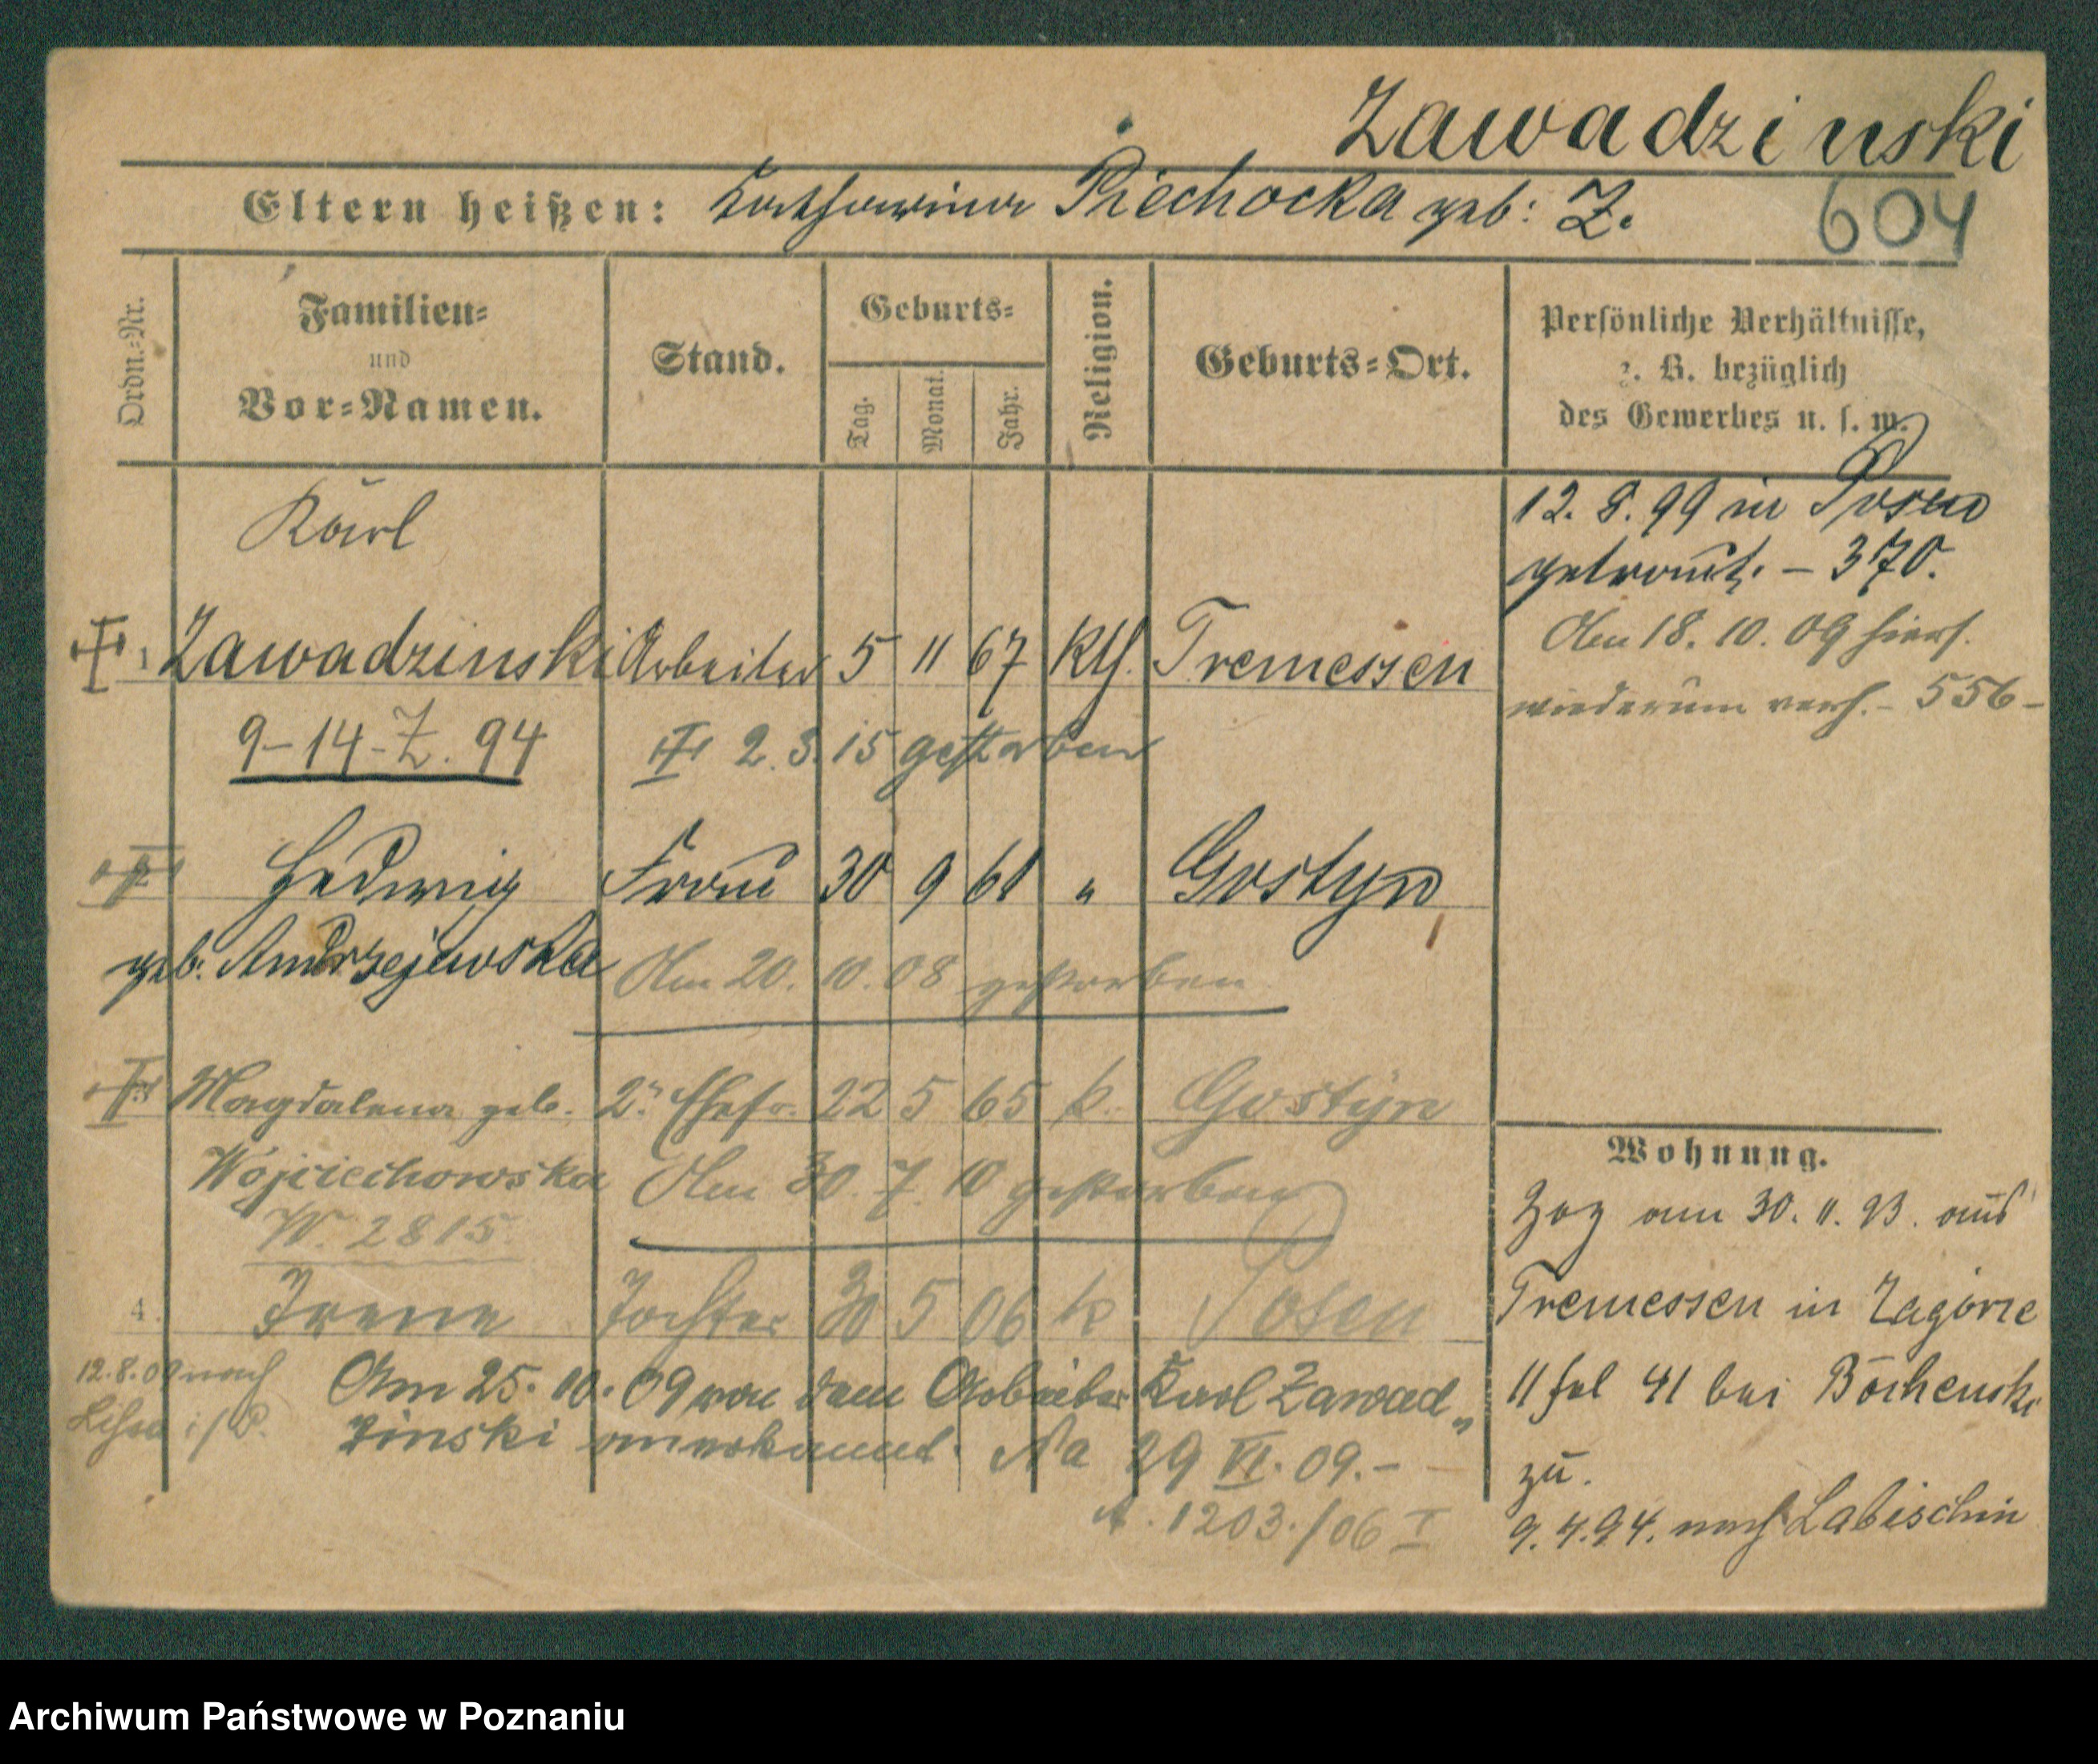 Zawadzinski
Eltern heißen: Katharina Piechocka geb: Z.
604
Ordn.-Nr.
Familien-
und
Vor-Namen.
Stand.
Geburts-
Tag.
Monat.
Jahr.
Religion.
Geburts-Ort.
Persönliche Verhältnisse,
z. B. bezüglich
des Gewerbes u. s. w.
Karl
1 Zawadzinski Arbeiter 5 11 67 kth. Tremessen
9-14-Z. 94
2. 3. 15 gestorben
12. 8. 99 in Posen
getraut. – 370.
Am 18. 10. 09 hiers.
wiederum verh. – 556 –
2 Hedwig Frau 30 9 61 " Gostyn
geb. Andrzejewska
Am 20. 10. 08 gestorben
3 Magdalena geb. 2. Ehefr. 22 5 65 k. Gostyn
Wojciechowska Am 30. 7. 10 gestorben
W. 2815
4. Irene Tochter 30 5 06 k Posen
12.8.09 nach
Lissa i/P.
Am 25. 10. 09 von dem Arbeiter Karl Zawad„
zinski anerkannt. Na 29 VI. 09.–
A. 1203./06 I
Wohnung.
Zog am 30. 11. 93. aus
Tremessen in Zagorze
11 fol 41 bei Bochenski
zu.
9. 4. 94. nach Labischin
Archiwum Państwowe w Poznaniu